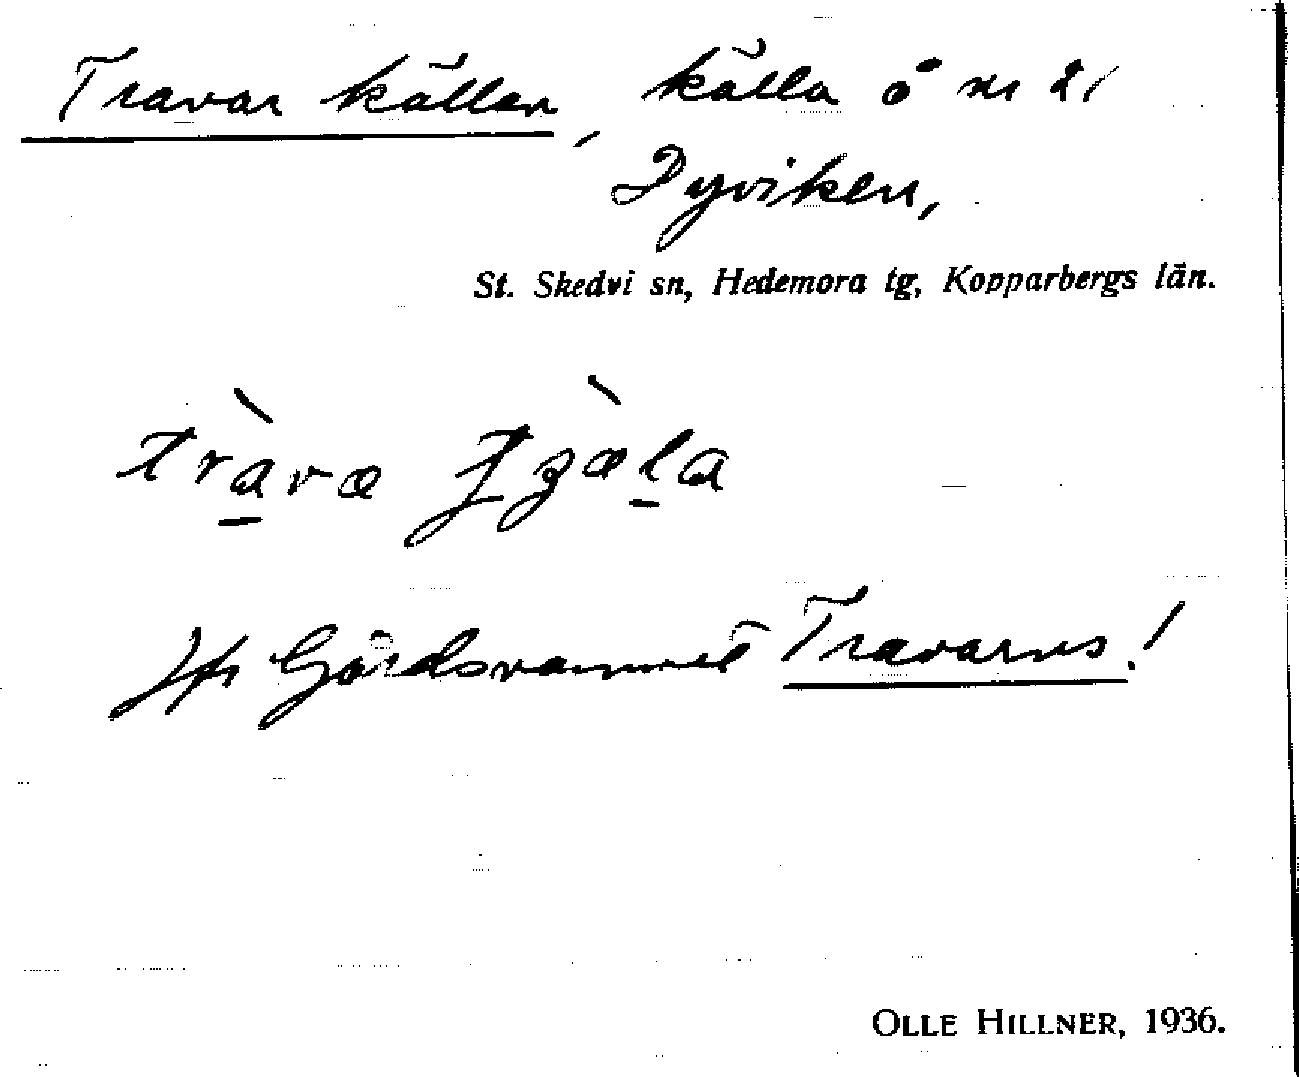 Travar källan, källa å nr 21
Dyviken,
St. Skedvi sn, Hedemora tg, Kopparbergs län.
Jfr Gårdsnamnet Travarns!
OLLE HILLNER, 1936.